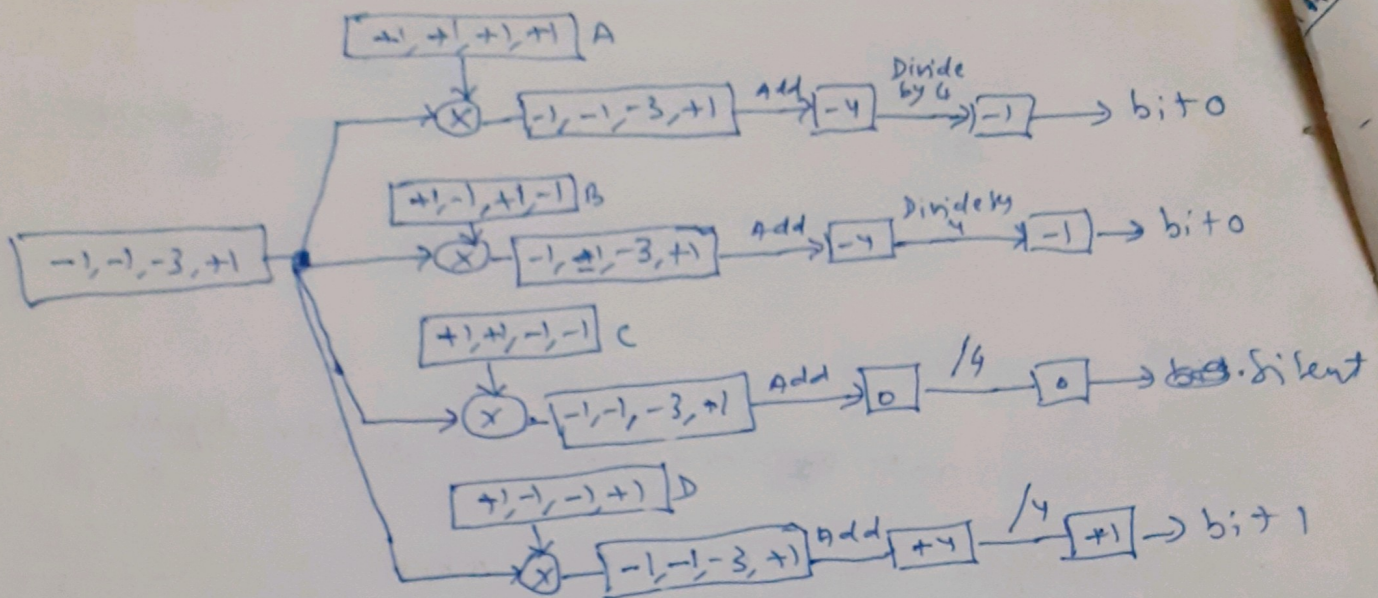 +1, +1, +1, +1 A
X -1, -1, -3, +1 Add -4 Divide by 4 -1 bit 0
+1, -1, +1, -1 B
X -1, +1, -3, +1 Add -4 Divide by 4 -1 bit 0
-1, -1, -3, +1
+1, +1, -1, -1 C
X -1, -1, -3, +1 Add 0 /4 0 Silent
+1, -1, -1, +1 D
X -1, -1, -3, +1 Add +4 /4 +1 bit 1